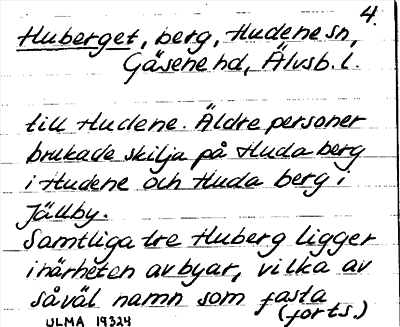 4.
Huberget, berg, Hudene sn,
Gäsene hd, Älvsb. l.
till Hudene. Äldre personer
brukade skilja på Huda berg
i Hudene och Huda berg i
Jällby.
Samtliga tre Huberg ligger
i närheten av byar, vilka av
såväl namn som fasta
(forts.)
ULMA 19324